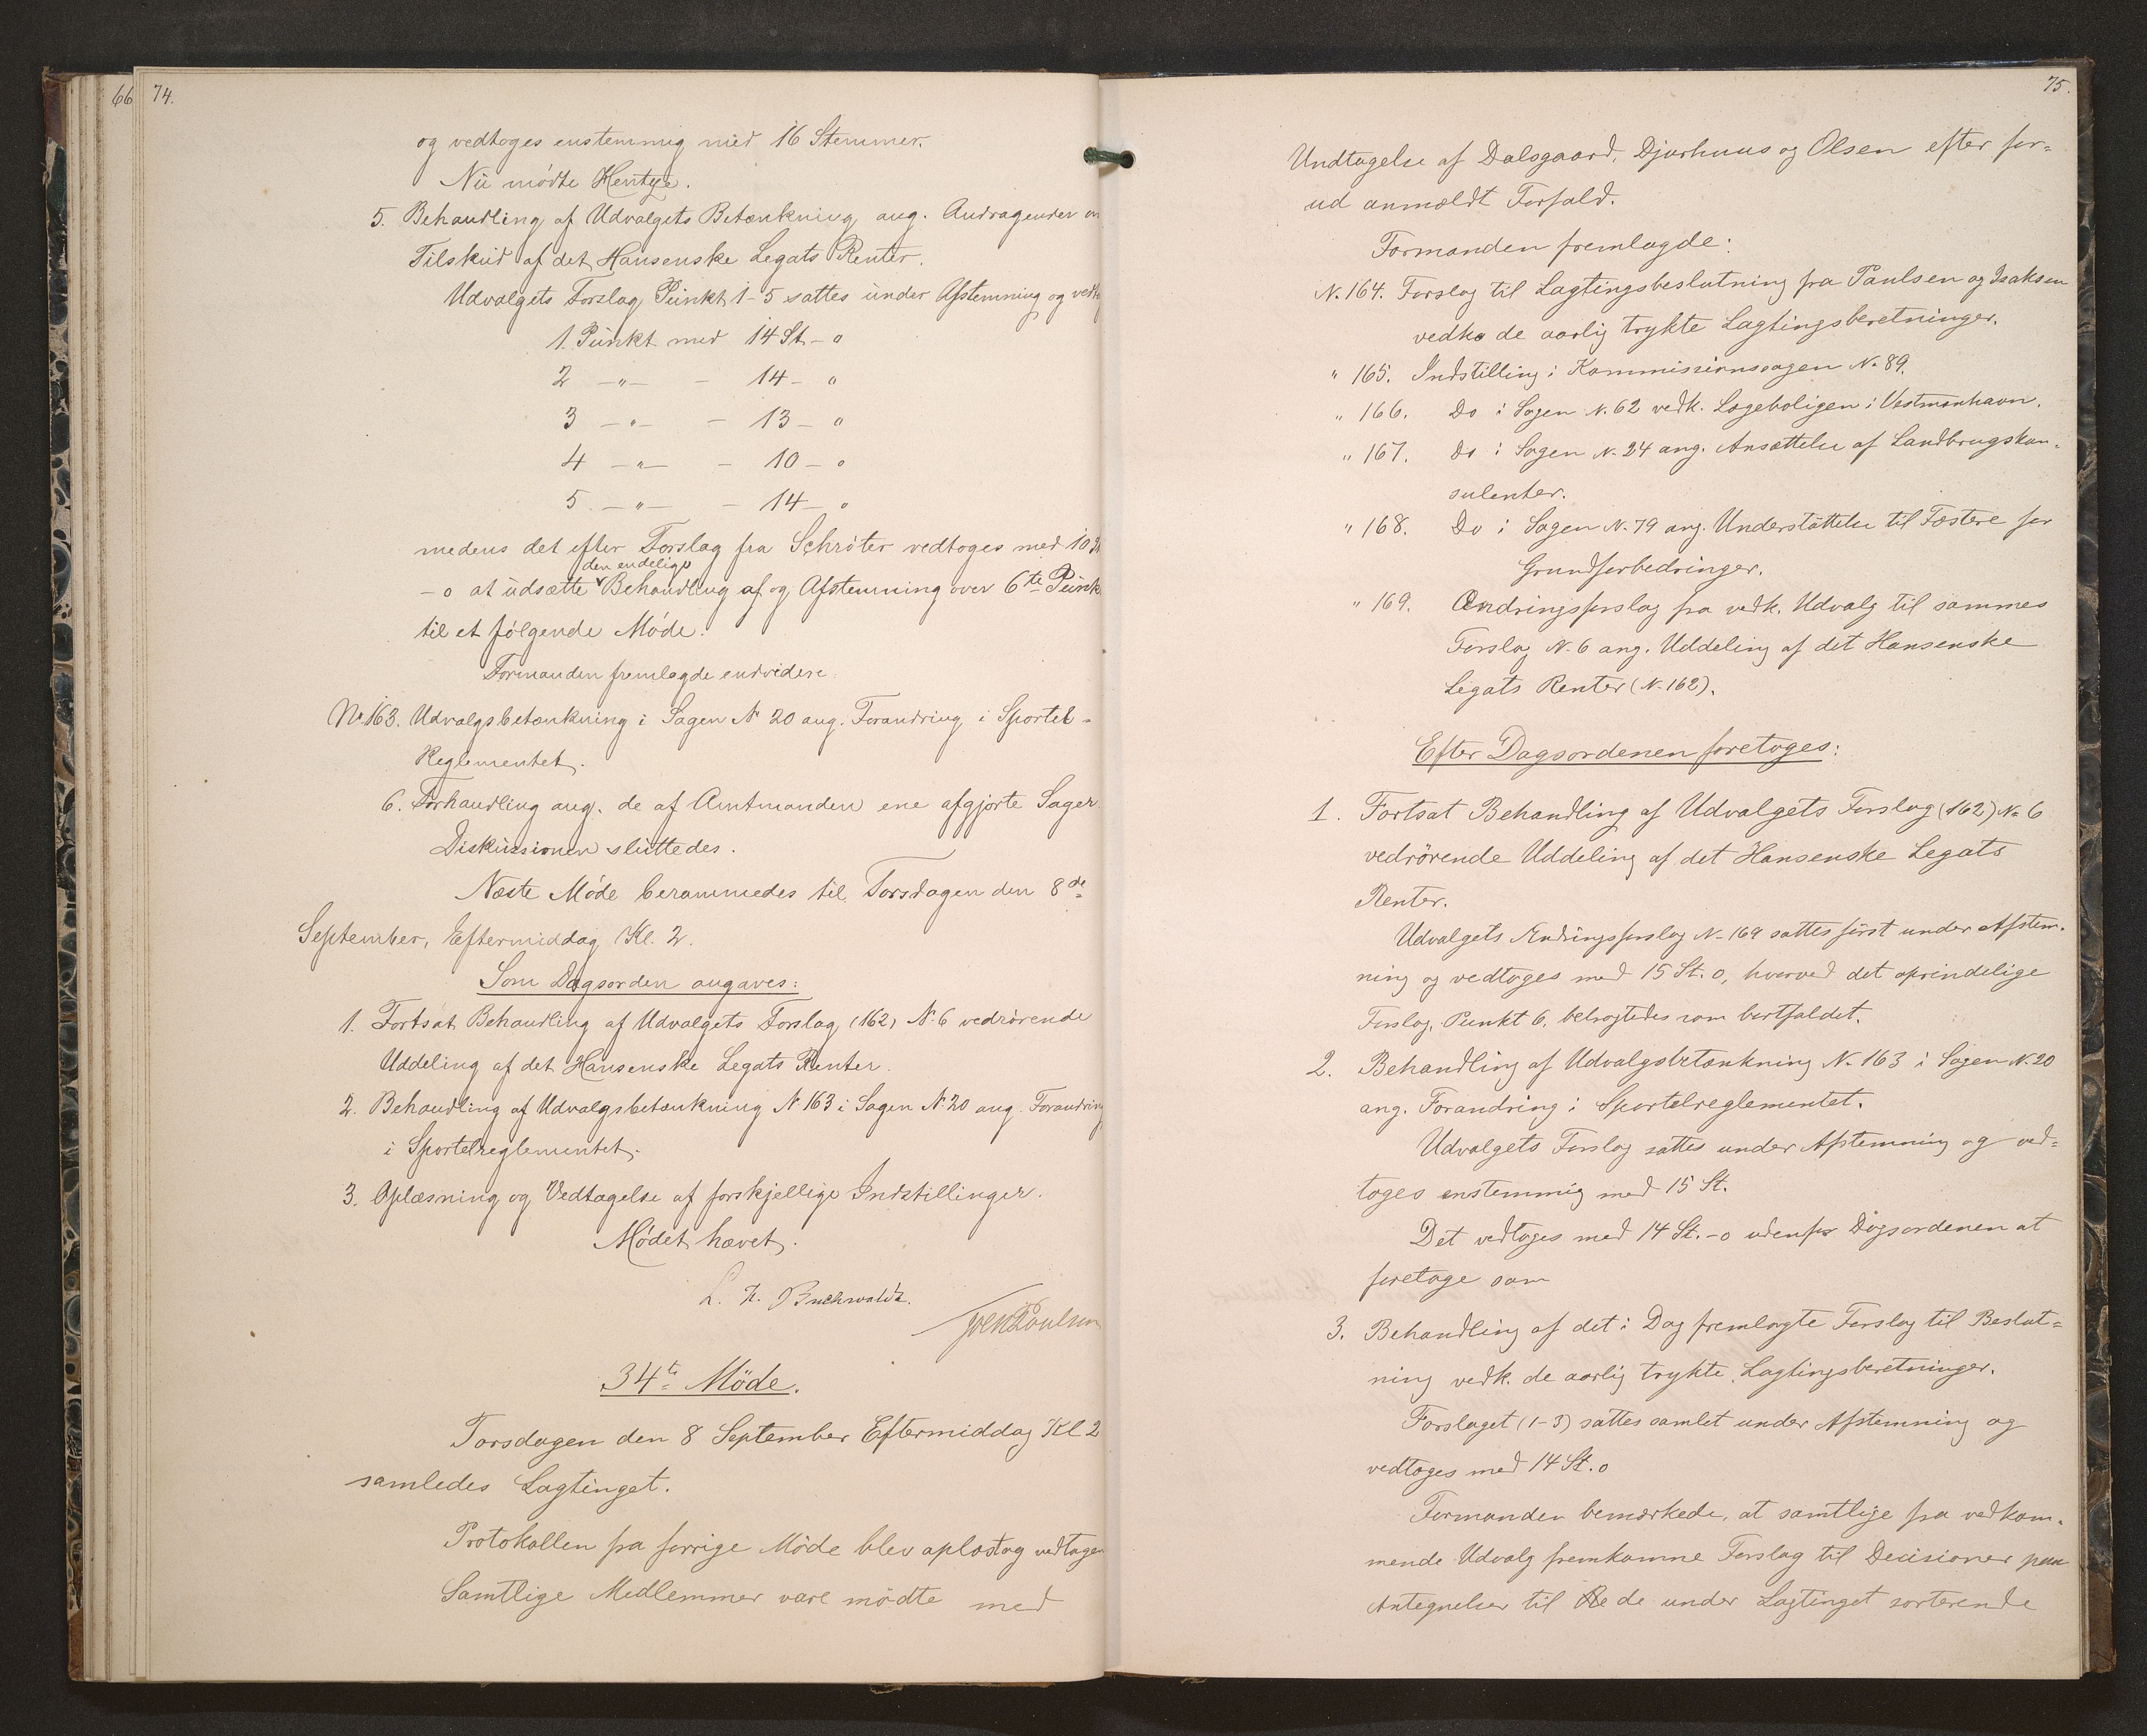 66 74.
og vedtoges enstemmig med 16 Stemmer.
Nu mødte Hentze.
5. Behandling af Udvalgets Betænkning ang. Andragender om
Tilskud af det Hansenske Legats Renter.
Udvalgets Forslag Punkt 1-5 sattes under Afstemning og vedto
1. Punkt med 14 St - 0
2 -"- - 14 - 0
3 -"- - 13 - 0
4 -"- - 10 - 0
5 -"- - 14 - 0
medens det efter Forslag fra Schrøter vedtoges med 10 St
den endelige
- 0 at udsætte Behandling af og Afstemning over 6te Punk
til et følgende Møde.
Formanden fremlagde endvidere
No 163. Udvalgsbetænkning i Sagen No 20 ang. Forandring i Sportel-
Reglementet.
6. Forhandling ang. de af Amtmanden ene afgjorte Sager.
Diskussionen sluttedes.
Næste Møde berammedes til Torsdagen den 8de
September, Eftermiddag Kl. 2.
Som Dagsorden angaves:
1. Fortsat Behandling af Udvalgets Forslag (162) No 6 vedrørende
Uddeling af det Hansenske Legats Renter.
2. Behandling af Udvalgsbetænkning No 163 i Sagen No 20 ang. Forandring
i Sportelreglementet.
3. Oplæsning og Vedtagelse af forskjellige Indstillinger.
Mødet hævet.
L. H. Buchwaldt.
Joen Poulsen
34te Møde.
Torsdagen den 8 September Eftermiddag Kl 2
samledes Lagtinget.
Protokollen fra forrige Møde blev oplæst og vedtagen
Samtlige Medlemmer vare mødte med
75.
Undtagelse af Dalsgaard, Djurhuus og Olsen efter for=
ud anmeldt Forfald.
Formanden fremlagde:
No. 164. Forslag til Lagtingsbeslutning fra Paulsen og Isaksen
vedk. de aarlig trykte Lagtingsberetninger.
" 165. Indstilling i Kommissionssagen No 89.
" 166. Do i Sagen No. 62 vedk. Lægeboligen i Vestmanhavn.
" 167. Do i Sagen No. 24 ang. Ansættelse af Landbrugskon-
sulenter.
" 168. Do i Sagen No. 79 ang. Understøttelse til Fæstere for
Grundforbedringer.
" 169. Ændringsforslag fra vedk. Udvalg til sammes
Forslag No. 6 ang. Uddeling af det Hansenske
Legats Renter (No. 162).
Efter Dagsordenen foretoges:
1. Fortsat Behandling af Udvalgets Forslag (162) No 6
vedrørende Uddeling af det Hansenske Legats
Renter.
Udvalgets Ændringsforslag No. 169 sattes først under Afstem-
ning og vedtoges med 15 St. 0, hvorved det oprindelige
Forslag, Punkt 6, betragtedes som bortfaldet.
2. Behandling af Udvalgsbetænkning No. 163 i Sagen No. 20
ang. Forandring i Sportelreglementet.
Udvalgets Forslag sattes under Afstemning og ved=
toges enstemmig med 15 St.
Det vedtoges med 14 St. - 0 udenfor Dagsordenen at
foretage som
3. Behandling af det i Dag fremlagte Forslag til Beslut=
ning vedk. de aarlig trykte Lagtingsberetninger.
Forslaget (1-3) sattes samlet under Afstemning og
vedtoges med 14 St. 0
Formanden bemærkede, at samtlige fra vedkom-
mende Udvalg fremkomne Forslag til Decisioner paa
Antegnelser til de under Lagtinget sorterende